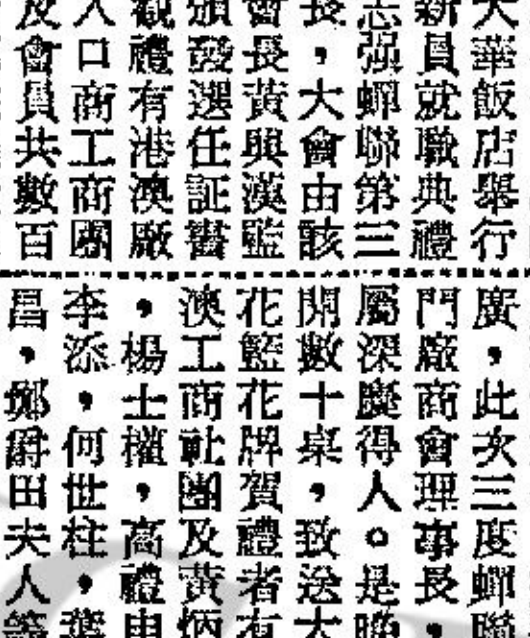 大華飯店舉行
新員就職典禮
志强蟬聯第三
長，大會由該
會長黃與漢監
頒發選任証書
觀禮有港澳廠
人口商工商團
及會員共數百
廣，此次三度蟬聯
門廠商會理事長，
屬深慶得人。是晚
開數十桌，致送大
花籃花牌賀禮者有
澳工商社團及黃炳
，楊士權，高禮申
李添，何世柱，葉
昌，鄭爵田夫人等